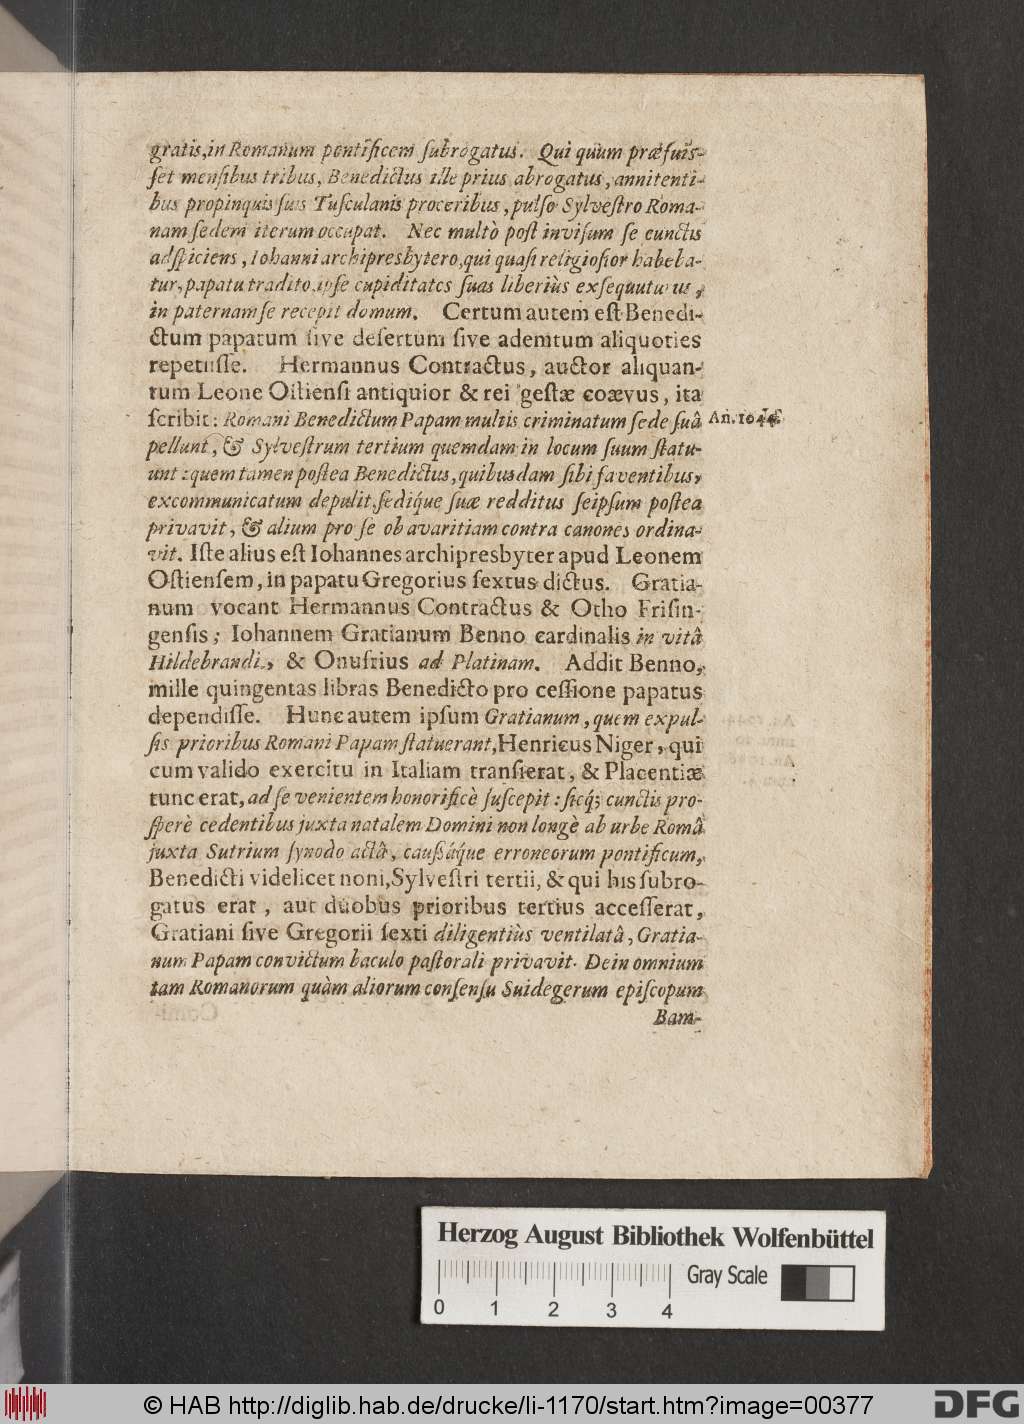 gratis, in Romanum pontificem ſubrogatus. Qui quùm præfuiſ-
ſet menſibus tribus, Benedictus ille prius abrogatus, annitenti-
bus propinquis ſuis Tuſculanis proceribus, pulſo Sylveſtro Roma-
nam ſedem iterum occupat. Nec multò poſt inviſum ſe cunctis
adſpiciens, Iohanni archipresbytero, qui quaſi religioſior habeba-
tur, papatu tradito, ipſe cupiditates ſuas liberiùs exſequuturus,
in paternam ſe recepit domum. Certum autem eſt Benedi-
ctum papatum ſive deſertum ſive ademtum aliquoties
repetiiſſe. Hermannus Contractus, auctor aliquan-
tum Leone Oſtienſi antiquior & rei geſtæ coævus, ita
ſcribit: Romani Benedictum Papam multis criminatum ſede ſuâ An. 1044.
pellunt, & Sylveſtrum tertium quemdam in locum ſuum ſtatu-
unt: quem tamen poſtea Benedictus, quibusdam ſibi faventibus,
excommunicatum depulit, ſedique ſuæ redditus ſeipſum poſtea
privavit, & alium pro ſe ob avaritiam contra canones ordina-
vit. Iſte alius eſt Iohannes archipresbyter apud Leonem
Oſtienſem, in papatu Gregorius ſextus dictus. Gratia-
num vocant Hermannus Contractus & Otho Friſin-
genſis; Iohannem Gratianum Benno cardinalis in vitâ
Hildebrandi, & Onufrius ad Platinam. Addit Benno,
mille quingentas libras Benedicto pro ceſſione papatus
dependiſſe. Hunc autem ipſum Gratianum, quem expul-
ſis prioribus Romani Papam ſtatuerant, Henricus Niger, qui
cum valido exercitu in Italiam tranſierat, & Placentiæ
tunc erat, ad ſe venientem honorificè ſuſcepit: ſicq; cunctis pro-
ſperè cedentibus juxta natalem Domini non longè ab urbe Româ
juxta Sutrium ſynodo actâ, cauſsáque erroneorum pontificum,
Benedicti videlicet noni, Sylveſtri tertii, & qui his ſubro-
gatus erat, aut duobus prioribus tertius acceſſerat,
Gratiani ſive Gregorii ſexti diligentiùs ventilatâ, Gratia-
num Papam convictum baculo paſtorali privavit. Dein omnium
tam Romanorum quàm aliorum conſenſu Suidegerum epiſcopum
Bam-
Herzog August Bibliothek Wolfenbüttel
0 1 2 3 4
Gray Scale
© HAB http://diglib.hab.de/drucke/li-1170/start.htm?image=00377
DFG